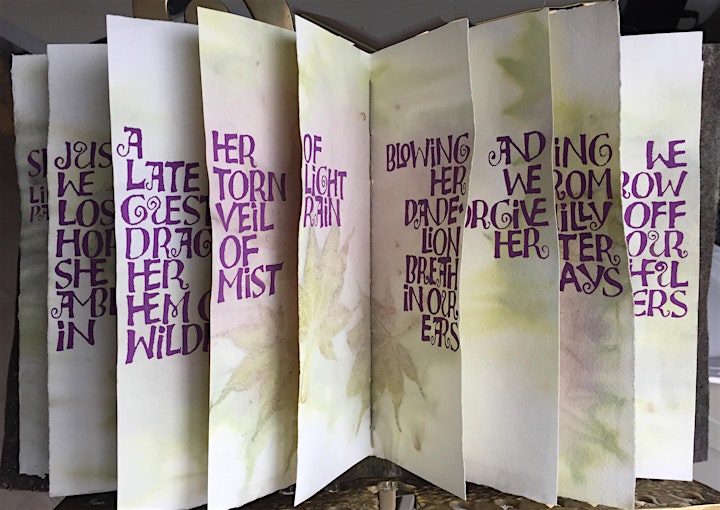 JUS
WE
LOS
HOP
SHE
AMBL
IN
A
LATE
GUEST
DRAG
HER
HEM O
WILD
HER
TORN
VEIL
OF
MIST
OF
LIGHT
RAIN
BLOWING
HER
DANDE-
LION
BREATH
IN OUR
EARS
AND
WE
ORGIVE
HER
ING
ROM
ILLY
TER
AYS
WE
ROW
OFF
OUR
HFUL
ERS